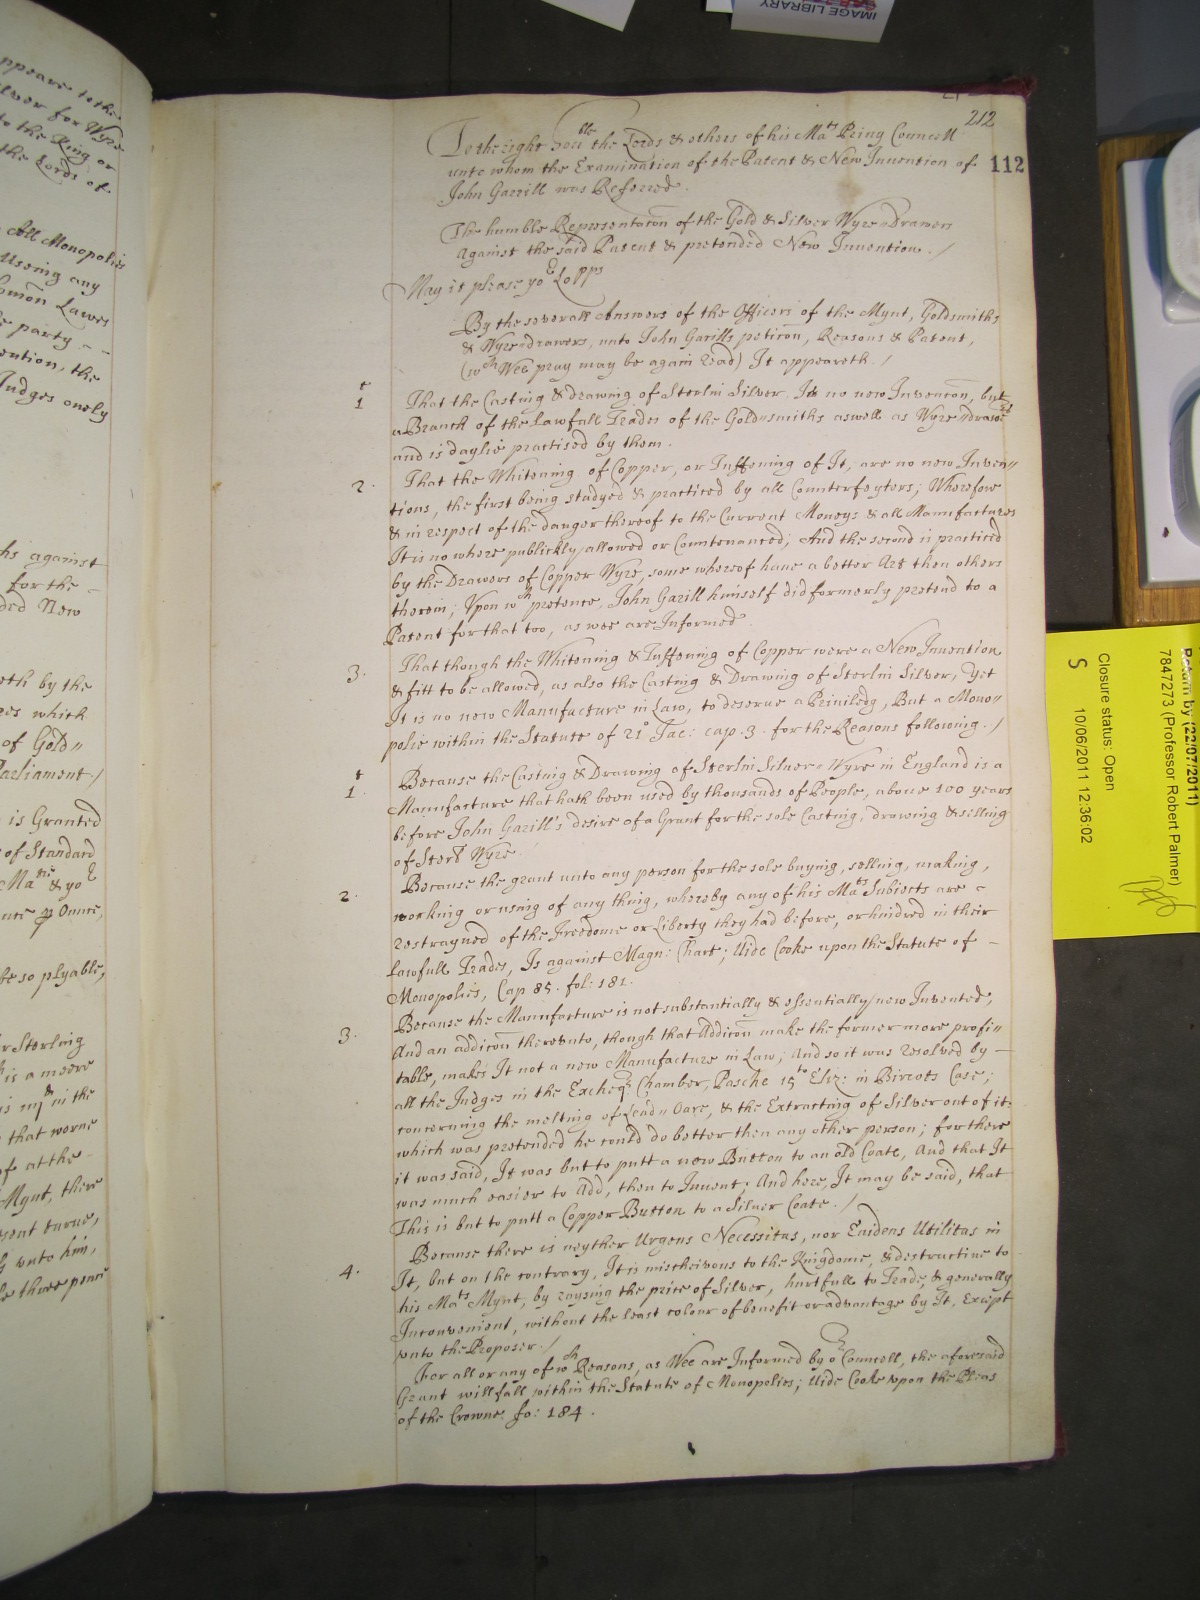 IMAGE LIBRARY
212
112
To the right Hon:ble the Lords & others of his Ma:ts Privy Councell
unto whom the Examination of the Patent & New Invention of
John Garrill was Referred.
The humble Representacon of the Gold & Silver Wyre=Drawers
Against the said Patent & pretended New Invention. /
May it please yor Lopps
By the severall Answers of the Officers of the Mynt, Goldsmiths
& Wyre=drawers, unto John Garills peticon, Reasons & Patent,
(wch Wee pray may be again read) It appeareth. /
1 That the Casting & drawing of Sterlin Silver, Is no new Invencon, but
a Branch of the Lawfull Trades of the Gold=smiths aswell as Wyre=drawers
and is daylie practised by them.
2. That the Whitening of Copper, or Tuffening of It, are no new Inven=
tions, the first being studyed & practiced by all Counterfeyters; Wherefore
& in respect of the danger thereof to the Current Moneys & all Manufactures
It is no where publickly allowed or Countenanced; And the second is practiced
by the Drawers of Copper Wyre, some whereof have a better Art then others
therein; Vpon wch pretence, John Garill himself did formerly pretend to a
Patent for that too, as wee are Informed.
3. That though the Whitening & Tuffening of Copper were a New Invention
& fitt to be allowed, as also the Casting & Drawing of Sterlin Silver, Yet
It is no new Manufacture in Law, to deserve a Priviledg, But a Mono=
polie within the Statute of 21o Jac: cap. 3. for the Reasons following. /
1. Because the Casting & Drawing of Sterlin Silver=Wyre in England is a
Manufacture that hath been used by thousands of People, above 100 years
before John Garill's desire of a Grant for the sole Casting, drawing & selling
of Sterl Wyre.
2. Because the grant unto any person for the sole buying, selling, making,
working or using of any thing, whereby any of his Ma:ts Subiects are
restrayned of the Freedome or Liberty they had before, or hindred in their
lawfull Trades, Is against Magn: Chart; Vide Cooke upon the Statute of
Monopolies, Cap 85. fol: 181.
3. Because the Manufacture is not substantially & essentially new Invented,
And an addicon thereunto, though that Addicon make the former more profi=
table, makes It not a new Manufacture in Law; And so it was resolved by
all the Judges in the Excheqr Chamber, Pasche 15to Eliz: in Bircots Case;
concerning the melting of Lead=Oare, & the Extracting of Silver out of it:
which was pretended he could do better then any other person; for there
it was said, It was but to putt a new Button to an old Coate, And that It
was much easier to Add, then to Invent; And here, It may be said, that
This is but to putt a Copper Button to a Silver Coate. /
4. Because there is neyther Urgens Necessitas, nor Evidens Utilitas in
It, but on the contrary, It is mischeivous to the Kingdome, & destructive to
his Ma:ts Mynt, by raysing the price of Silver, hurtfull to Trade, & generally
Inconvenient, without the least colour of benefit or advantage by It, Except
vnto the Proposer. /
For all or any of wch Reasons, as Wee are Informed by or Councell, the aforesaid
Grant will fall within the Statute of Monopolies; Vide Cooke vpon the Pleas
of the Crowne. fo: 184.
Return by (22/07/2011)
7847273 (Professor Robert Palmer)
Closure status: Open
10/06/2011 12:36:02
S
appeare to the
for Wyre
to the King or
the Lords of
All Monopolies
Useing any
Common Lawes
party
the
Judges onely
against
for the
New
by the
which
of Gold=
Parliament /
is Granted
of Standard
Ounce,
be so plyable,
Sterling
is a meere
in the
that worne
at the
Mynt, there
turne,
vnto him,
three pence